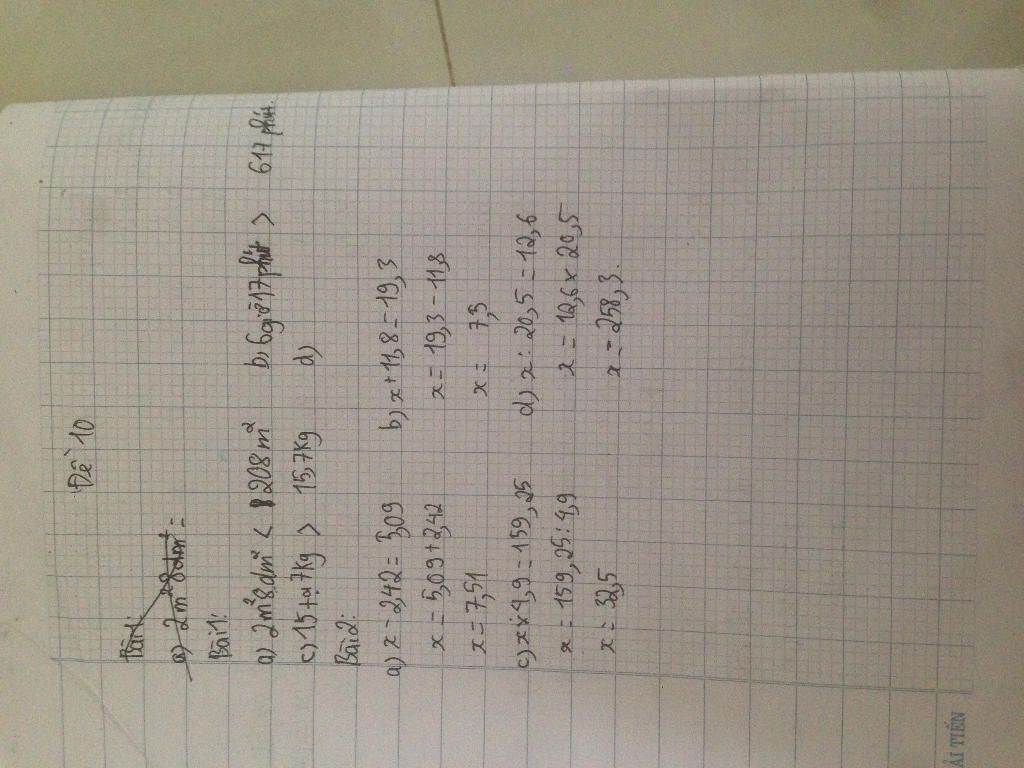 Đề 10
Bài 1:
a) 2m² 8dm² =
Bài 1:
a) 2m² 8dm² < 208 m² b) 6 giờ 17 phút > 617 phút
c) 15 tạ 7kg > 15,7kg d)
Bài 2:
a) x - 2,42 = 5,09 b) x + 11,8 = 19,3
x = 5,09 + 2,42 x = 19,3 - 11,8
x = 7,51 x = 7,3
c) x × 4,9 = 159,25 d) x : 20,5 = 12,6
x = 159,25 : 4,9 x = 12,6 × 20,5
x = 32,5 x = 258,3.
ẢI TIẾN